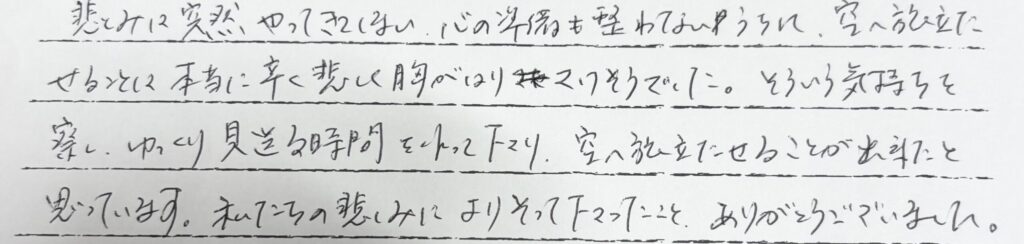 悲しみは突然やってきてしまい、心の準備も整わてないうちに、空へ旅立た
せることは本当に辛く悲しく胸がはりさけそうでした。そういう気持ちを
察し、ゆっくり見送る時間をとって下さり、空へ旅立たせることが出来たと
思っています。私たちの悲しみによりそって下さったこと、ありがとうございました。